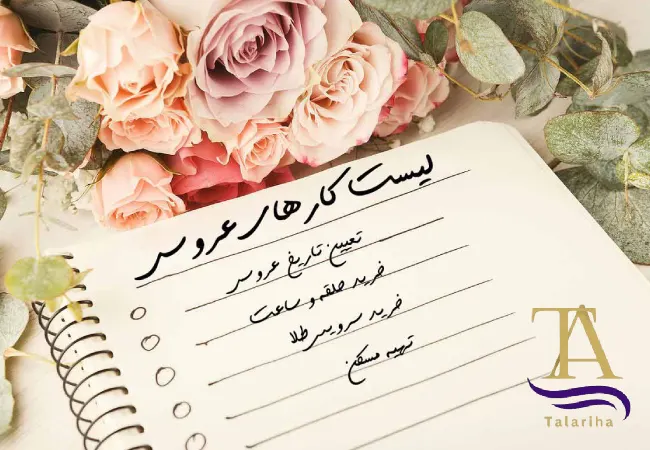 لیست کارهای عروس
تعیین تاریخ عروسی
خرید حلقه و ساعت
خرید سرویس طلا
تهیه مسکن
TA
Talariha